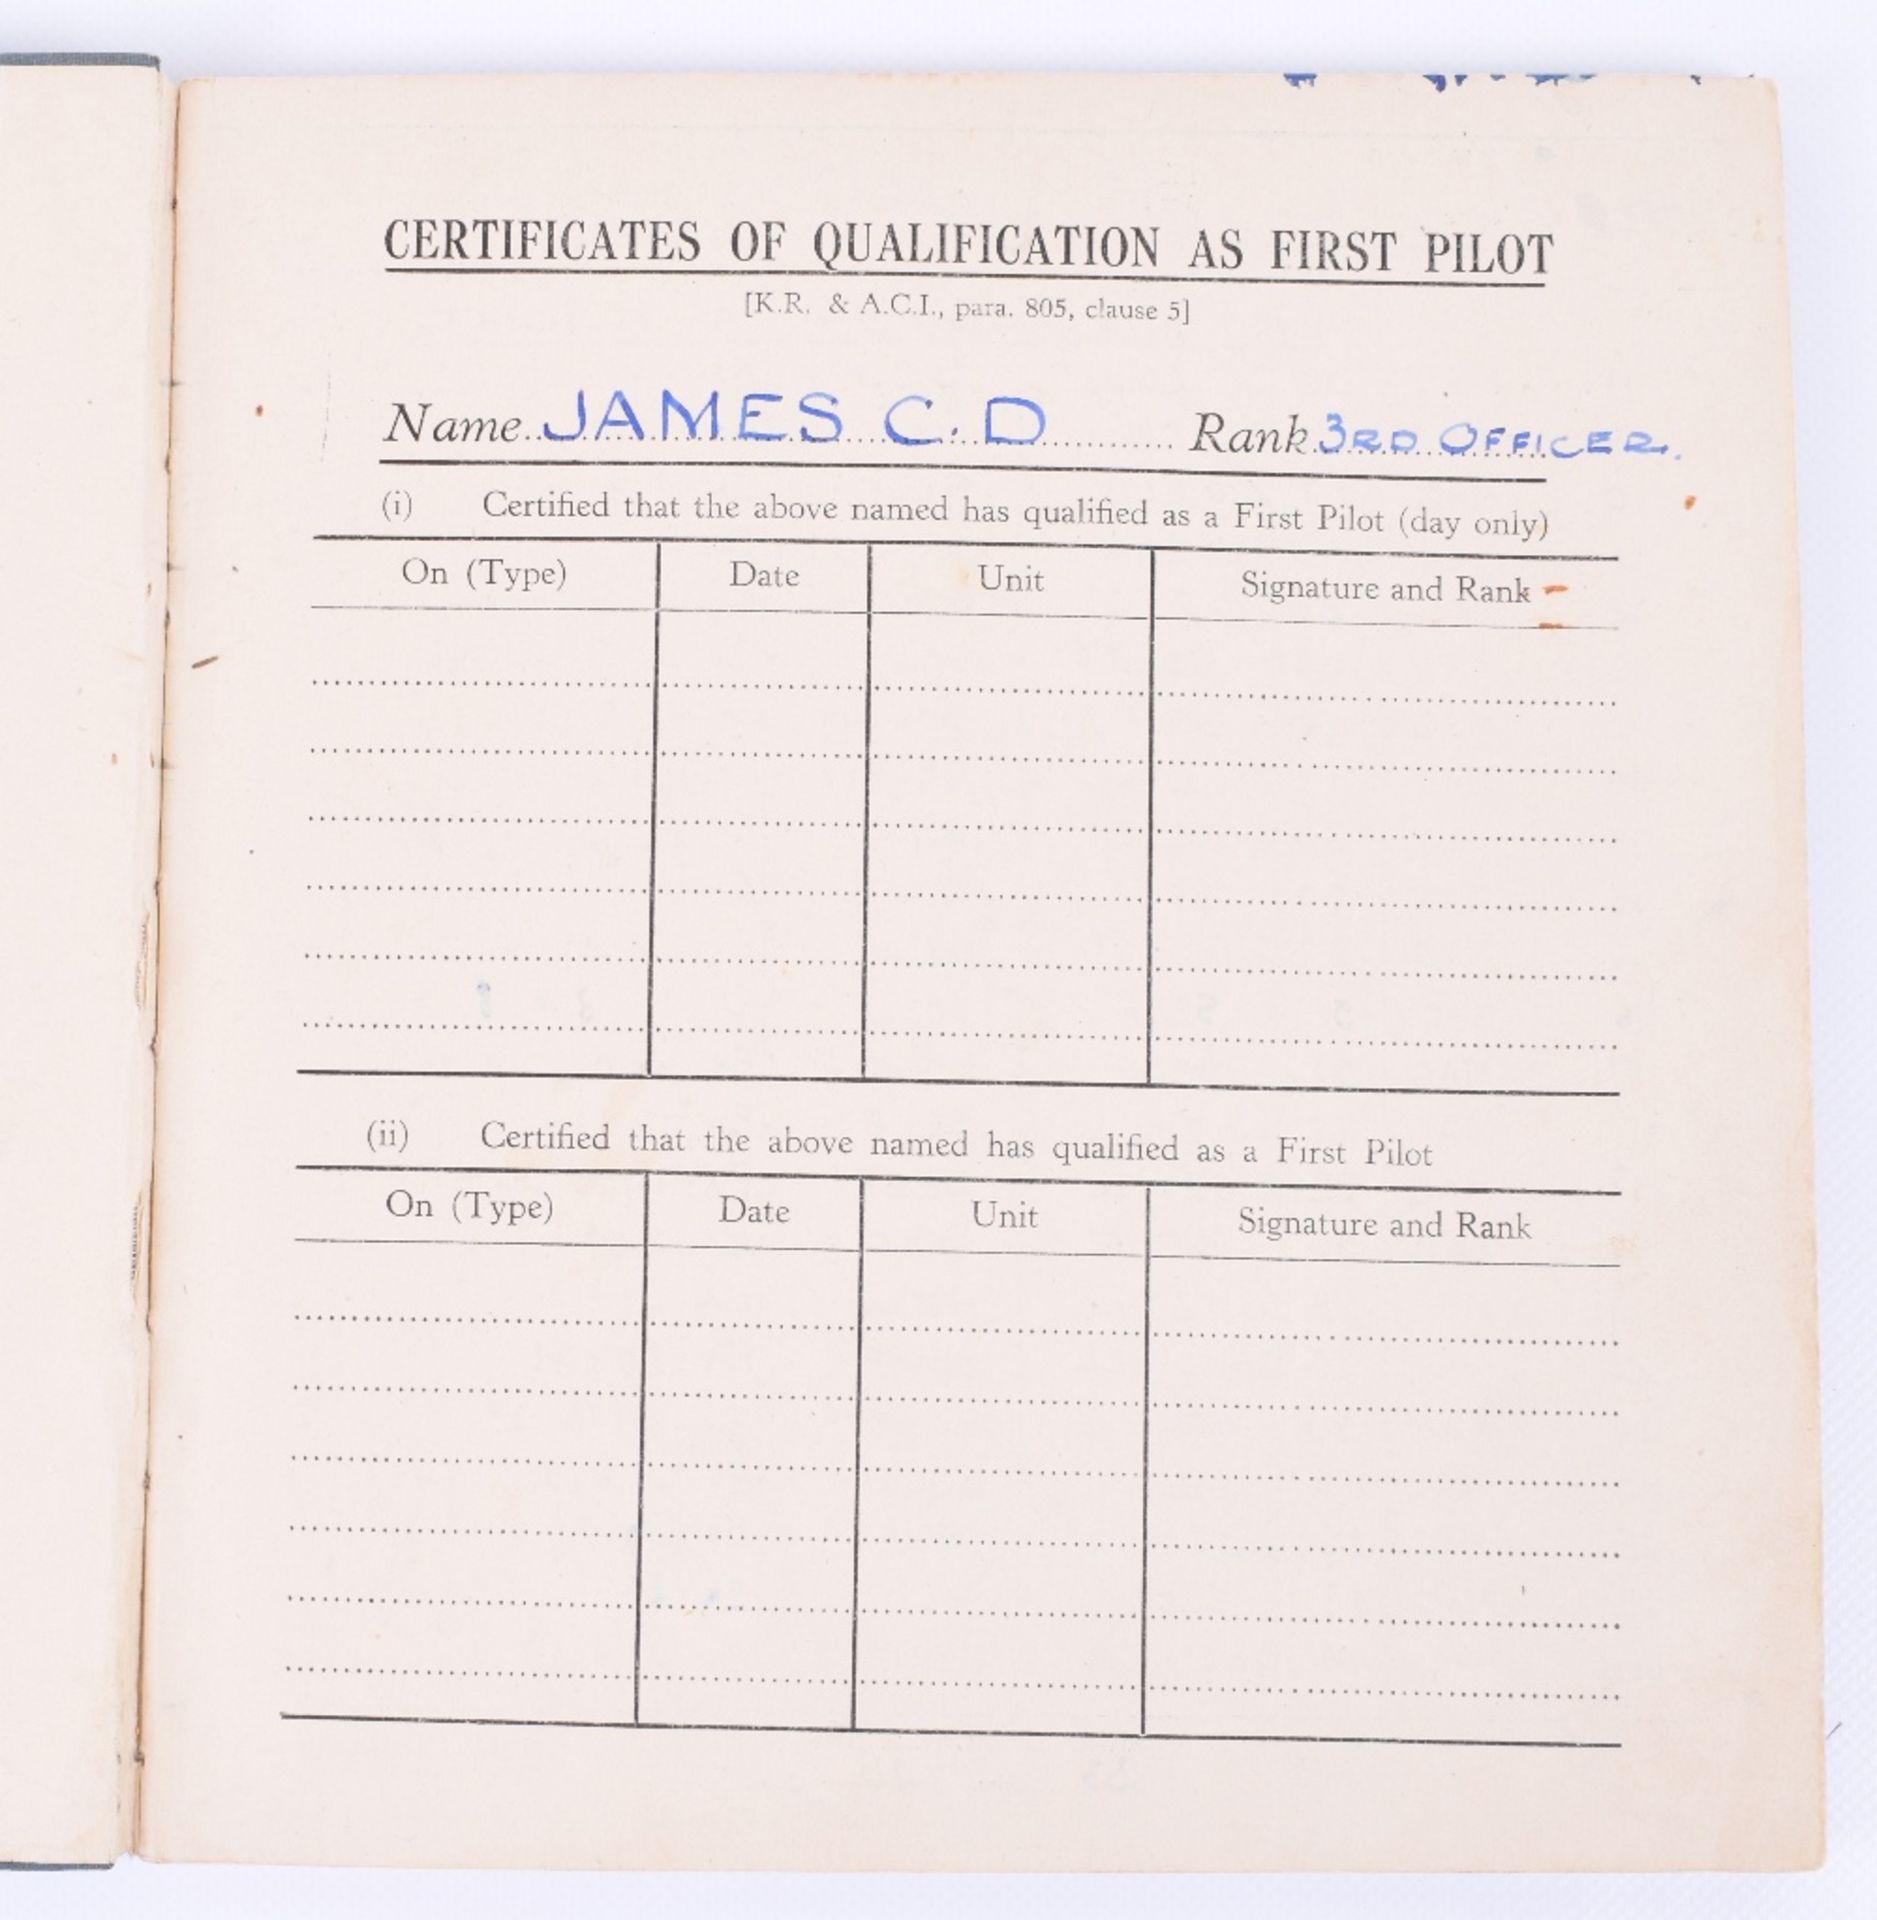 CERTIFICATES OF QUALIFICATION AS FIRST PILOT
[K.R. & A.C.I., para. 805, clause 5]
Name JAMES C. D Rank 3RD OFFICER.
(i) Certified that the above named has qualified as a First Pilot (day only)
On (Type) Date Unit Signature and Rank
(ii) Certified that the above named has qualified as a First Pilot
On (Type) Date Unit Signature and Rank